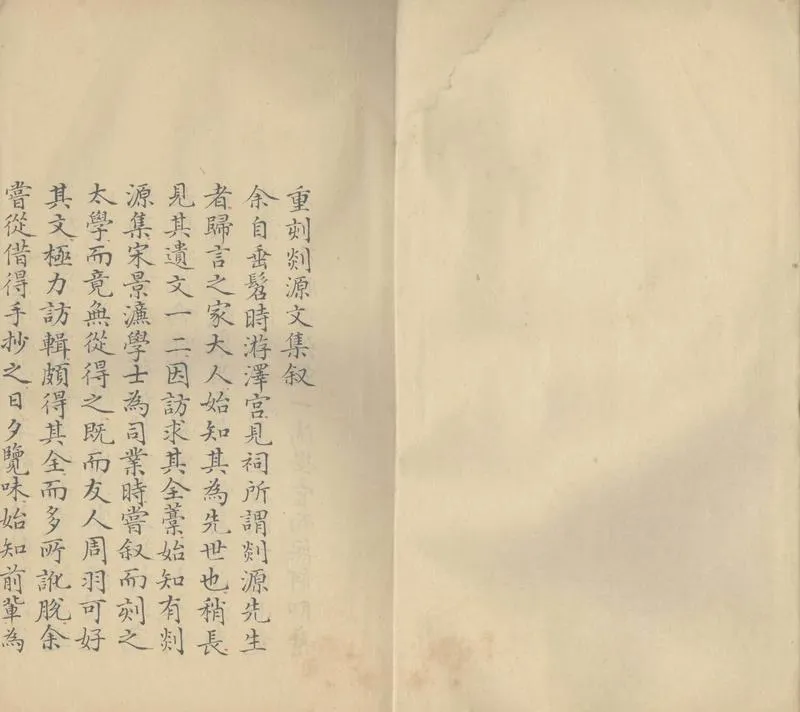 重刻剡源文集叙
余自垂髫時游澤宫見祠所謂剡源先生
者歸言之家大人始知其為先世也稍長
見其遺文一二因訪求其全藁始知有剡
源集宋景濂學士為司業時嘗叙而刻之
太學而竟無從得之既而友人周羽可好
其文極力訪輯頗得其全而多所訛脱余
嘗從借得手抄之日夕覽味始知前輩為